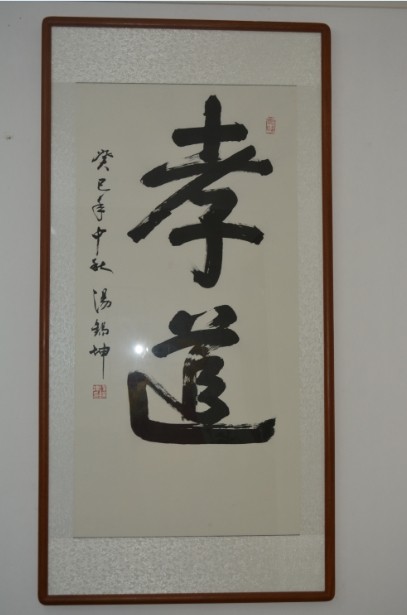 孝道
癸巳年中秋 湯錫坤